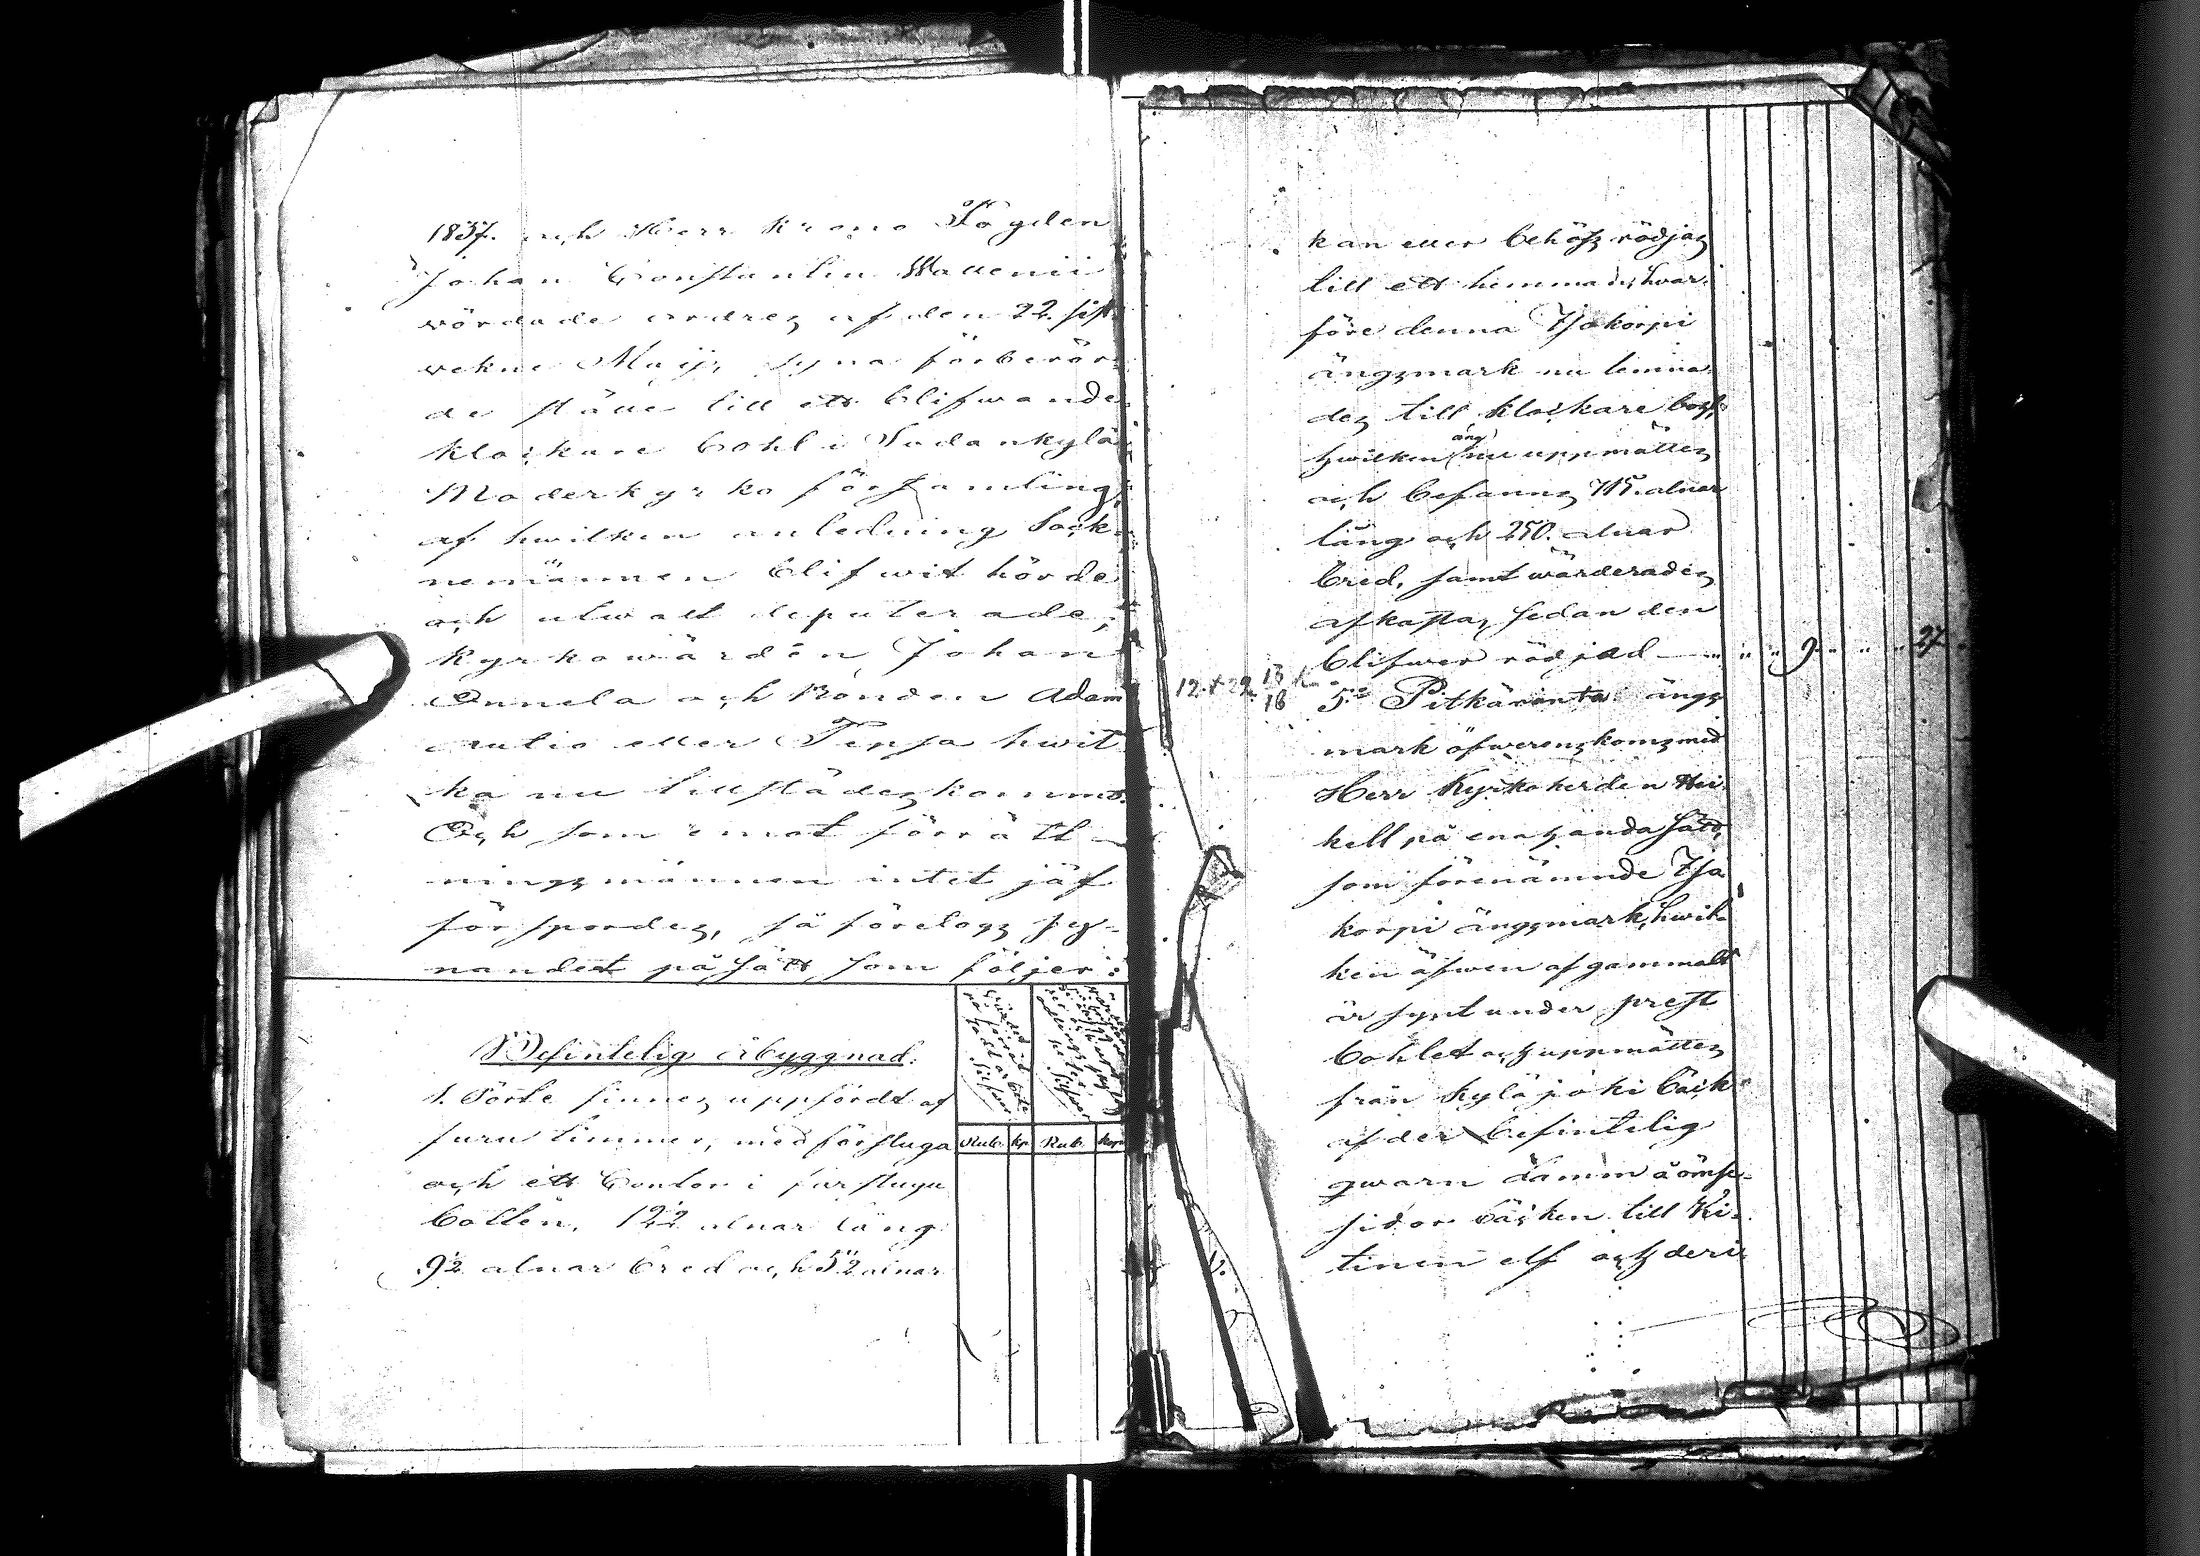 1837. och Herr Krono Fögden
Johan Constantin Wallenii
wördade ordres af den 22. sist-
wekne Maij, syna förberör-
de ställe till ett blifwande
klockare bohl i Sodankylä
Moderkyrko församling,
af hwilken anledning Sock-
nemännen blifwit hörde
och utwalt deputerade,
Kyrkowärden Johan
Onnela och Bonden Adam
Aulio eller Tepsa hwil-
ka nu tillstädeskommo.
Och som emot förrätt-
ningsmännen intet jäf
förspordes, så företogs sy-
nandet på sätt som följer:
Befintelig åbyggnad.
1. Pörte finnes uppfördt af
furu timmer, med förstuga
och ett Contor i farstugu
botten, 12½ alnar lång
9½ alnar bred och 5½ alnar
Rub. kp. Rub. kop.
kan eller behöfs rödjas
till ett hemman, hwar-
före denna Isokorpi
ängsmark nu lemna-
des till klockare bohl,
hwilken äng nu uppmättes
och befanns 715. alnar
lång och 250. alnar
bred, samt wärderades
afkasta, sedan den
blifwer rödjad 9. 27
5:o Pitkäranta ängs
mark öfwerenskoms med
Herr Kyrkoherden Hei-
kell på enahanda sätt,
som förenämnde Iso
korpi ängsmark, hwil-
ken äfwen af gammalt
är synt under prest
bohlet och uppmättes
från Kyläjoki bäck
af der befintelig
qwarn damm å ömse
sidor bäcken till Ki-
tinen elf och deri-